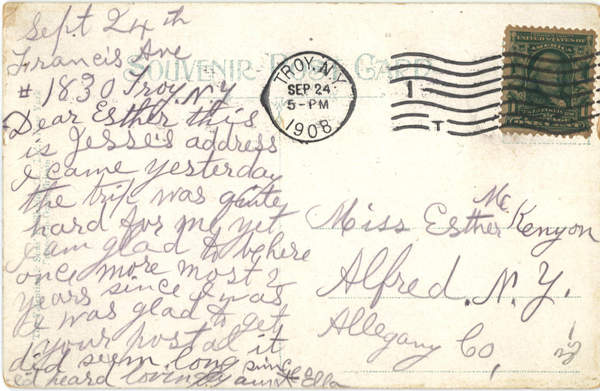 Sept 24th
Francis Ave
# 1830 Troy. N.Y
Dear Esther this
is Jesse's address
I came yesterday
the trip was quite
hard for me yet
I am glad to be here
once more most 2
years since I was
I was glad to get
your postal it
did seem long since
I heard lovingly aunt Ella
SOUVENIR POST CARD
TROY, N.Y.
SEP 24
5-PM
1908
1
T
UNITED STATES OF
AMERICA
Miss Esther Mc Kenyon
Alfred. N.Y.
Allegany Co,